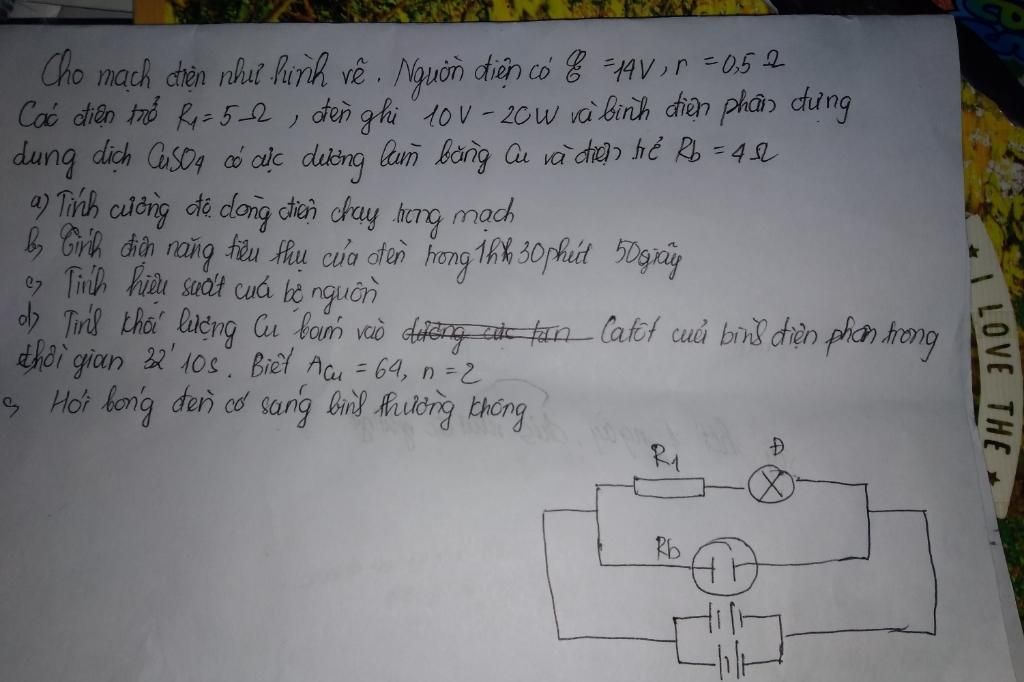 Cho mạch điện như hình vẽ. Nguồn điện có ℰ = 14V, r = 0,5 Ω
Các điện trở R1 = 5 Ω, đèn ghi 10V - 20W và bình điện phân dựng
dung dịch CuSO4 có cực dương làm bằng Cu và điện trở Rb = 4 Ω
a) Tính cường độ dòng điện chạy trong mạch
b) Tính điện năng tiêu thụ của đèn trong 1h 30 phút 50 giây
c) Tính hiệu suất của bộ nguồn
d) Tính khối lượng Cu bám vào dương cực tan Catốt của bình điện phân trong
thời gian 32' 10s. Biết ACu = 64, n = 2
e, Hỏi bóng đèn có sáng bình thường không
R1
Đ
Rb
I LOVE THE